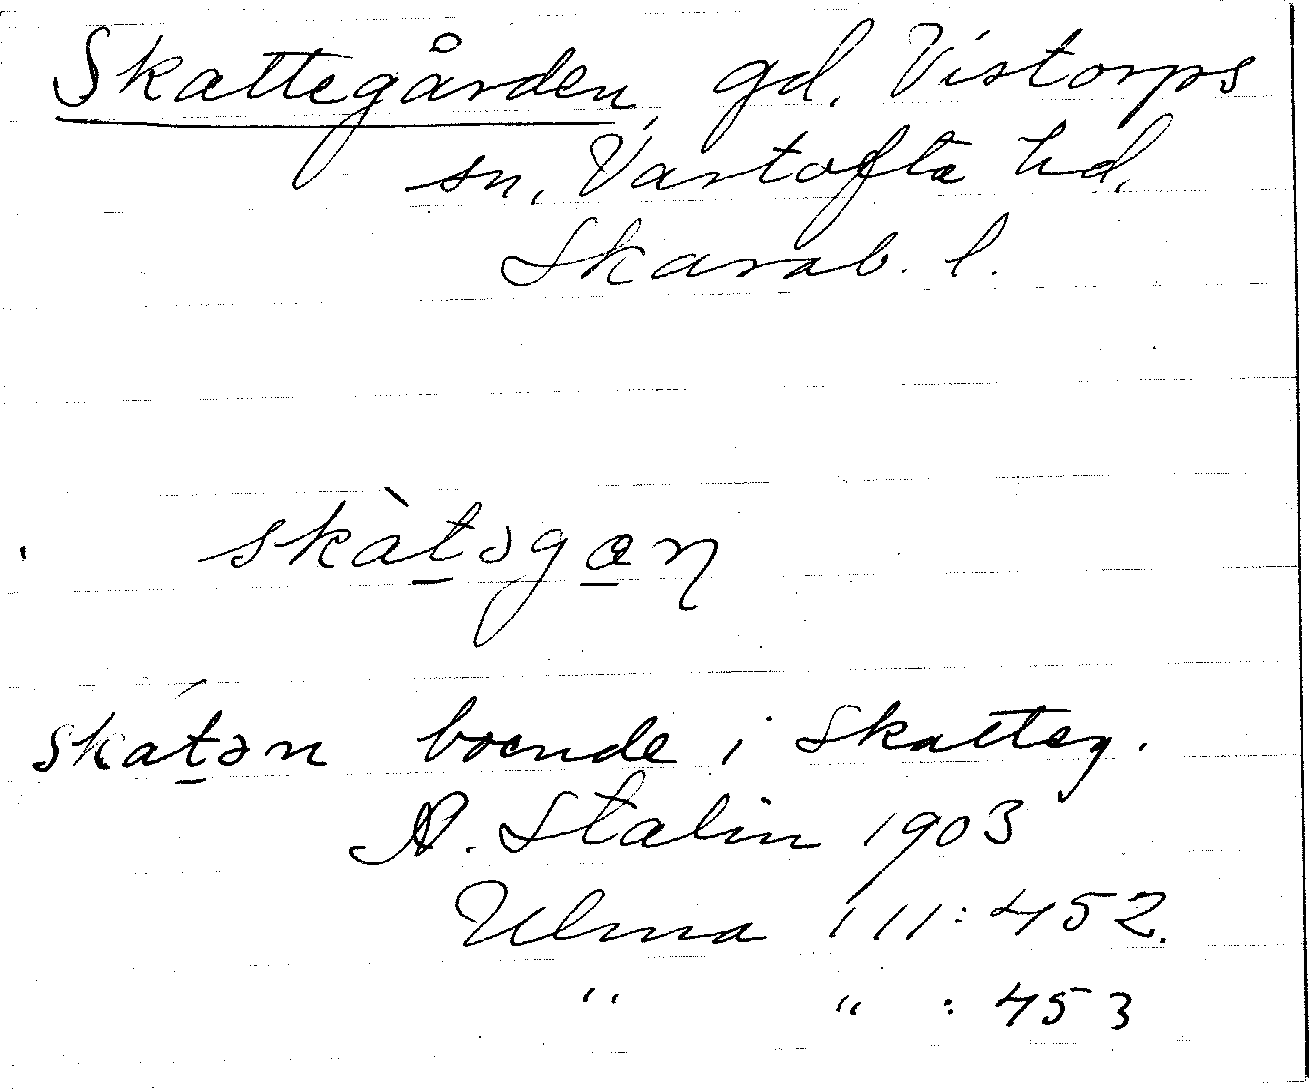 Skattegården, gd. Vistorps
sn, Vartofta hd,
Skarab. l.
skàt̲əga̲ɳ
skát̲ən boende i Skatteg.
A. Stalin 1903
Ulma 111:452.
" " : 453